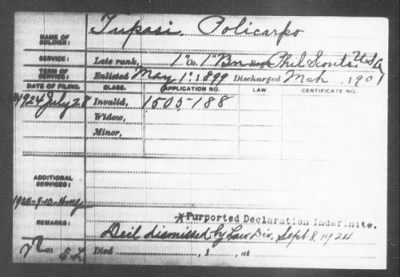 NAME OF SOLDIER: Tupasi, Policarpo
SERVICE: Late rank, 1" Co. 1" Bn Phil Scouts USA
TERM OF SERVICE: Enlisted May 1" 1899 Discharged Mch. 1901
DATE OF FILING. CLASS. APPLICATION NO. LAW. CERTIFICATE NO.
1924 July 28 Invalid, 1505-188
Widow,
Minor,
ADDITIONAL SERVICES:
*Purported Declaration Indefinite.
REMARKS: Decl dismissed by Law Div. Sept 8, 1924
Died , 1 , at